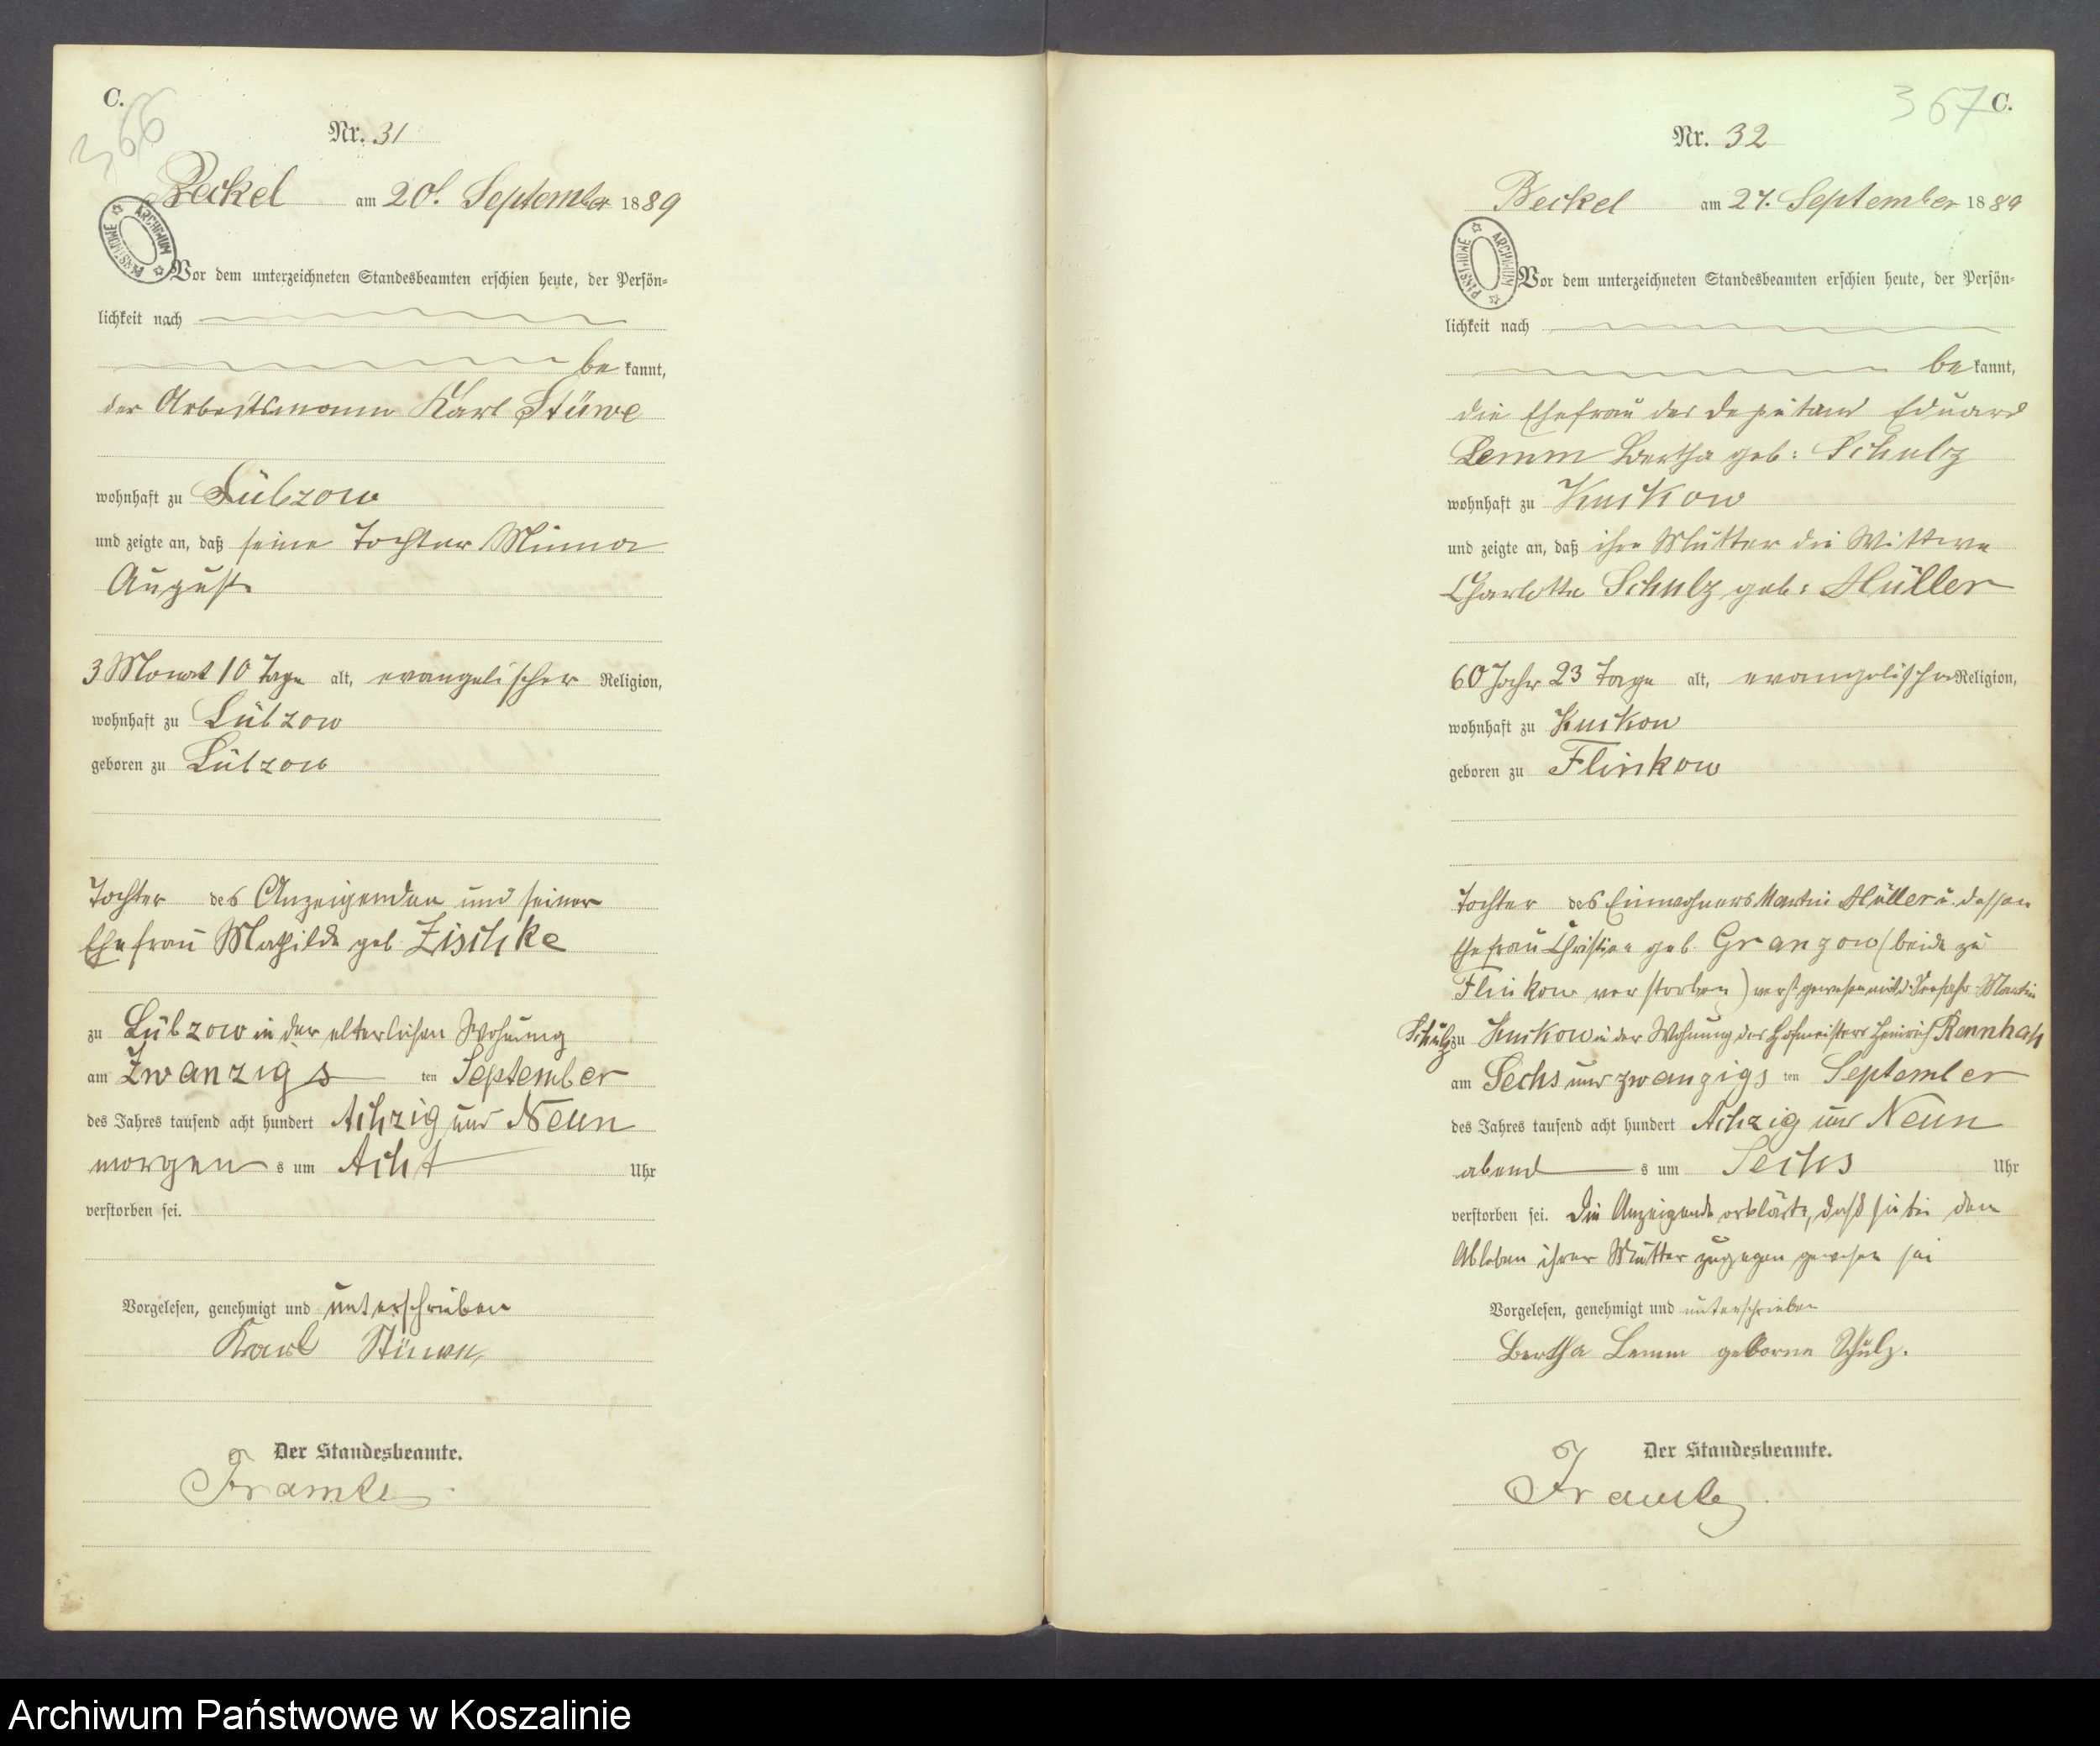 C.
366
Nr. 31
Beckel am 20. September 1889
ARCHIWUM PAŃSTWOWE
Vor dem unterzeichneten Standesbeamten erschien heute, der Persön-
lichkeit nach
be kannt,
der Arbeitsmann Karl Stüwe
wohnhaft zu Lübzow
und zeigte an, daß seine Tochter Minna
August
3 Monat 10 Tage alt, evangelischer Religion,
wohnhaft zu Lübzow
geboren zu Lübzow
Tochter des Anzeigenden und seiner
Ehefrau Mathilde geb. Zischke
zu Lübzow in der elterlichen Wohnung
am Zwanzigs ten September
des Jahres tausend acht hundert Achzig und Neun
morgen s um Acht Uhr
verstorben sei.
Vorgelesen, genehmigt und unterschrieben
Karl Stüwe
Der Standesbeamte.
367 C.
Nr. 32
Beckel am 27. September 1889
ARCHIWUM PAŃSTWOWE
Vor dem unterzeichneten Standesbeamten erschien heute, der Persön-
lichkeit nach
be kannt,
die Ehefrau des Deputant Eduard
Lemm Bertha geb: Schulz
wohnhaft zu Kuckow
und zeigte an, daß ihre Mutter die Wittwe
Charlotte Schulz geb: Müller
60 Jahr 23 Tage alt, evangelischer Religion,
wohnhaft zu Kuckow
geboren zu Flinkow
Tochter des Einwohners Martin Müller u. dessen
Ehefrau Christine geb. Granzow (beide zu
Flinkow verstorben) gewesen mit Martin
Schulz zu Kuckow in der Wohnung des Hofmeisters Heinrich
am Sechs und zwanzigs ten September
des Jahres tausend acht hundert Achzig und Neun
abend s um Sechs Uhr
verstorben sei. Die Anzeigende erklärte, daß sie bei dem
Ableben ihrer Mutter zugegen gewesen sei
Vorgelesen, genehmigt und unterschrieben
Bertha Lemm geborne Schulz.
Der Standesbeamte.
Archiwum Państwowe w Koszalinie